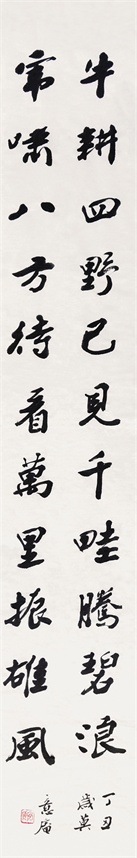 牛耕四野已見千畦騰碧浪
虎嘯八方待看萬里振雄風
丁丑
歲莫
意庵